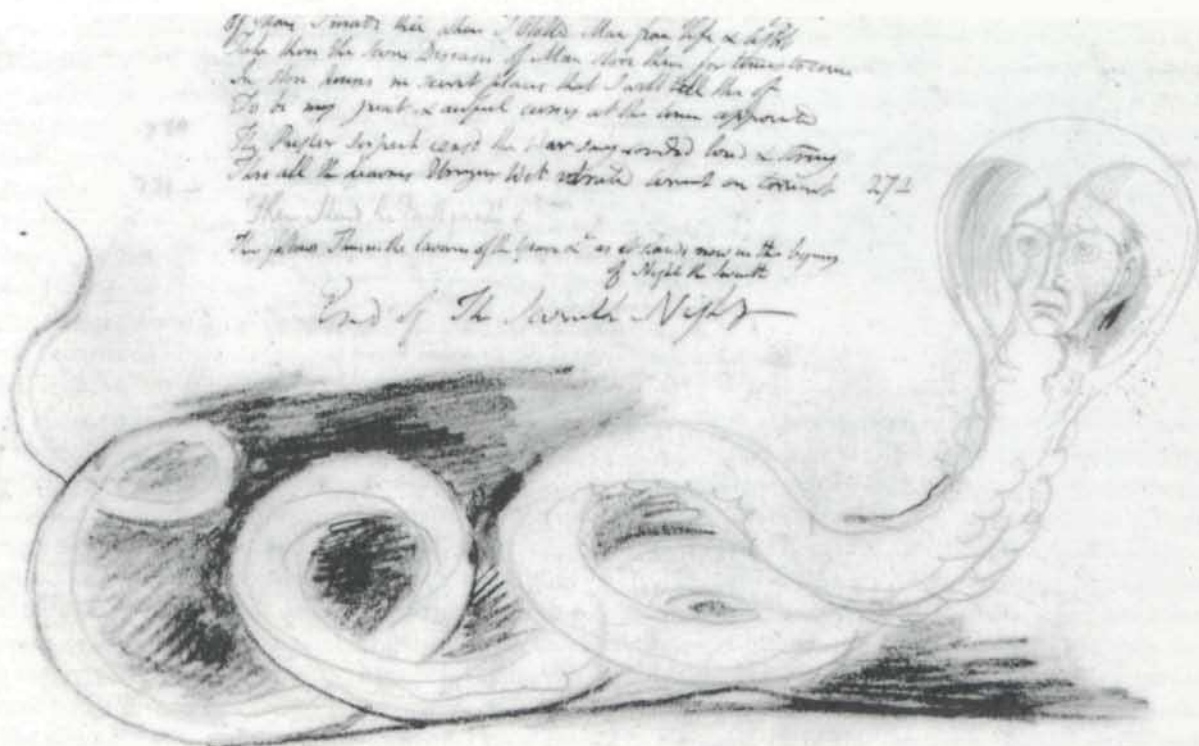 Of Man I made thee when I blotted Man from life & light
Take thou the seven Diseases of Man store them for times to come
In store houses in secret places that I will tell thee of
To be my great & awful curses at the time appointed
The Prester Serpent ceasd the War song sounded loud & strong
Thro all the heavens Urizens Web vibrated torment on torment
Then follows Thus in the Caverns of the Grave &c as it stands now in the
of Night the Seventh
End of The Seventh Night